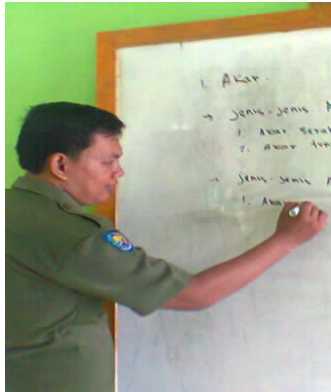 1. Akar.
→ Jenis-jenis A
1. Akar Sera
2. Akar tun
→ Jenis-Jenis A
1. Akar